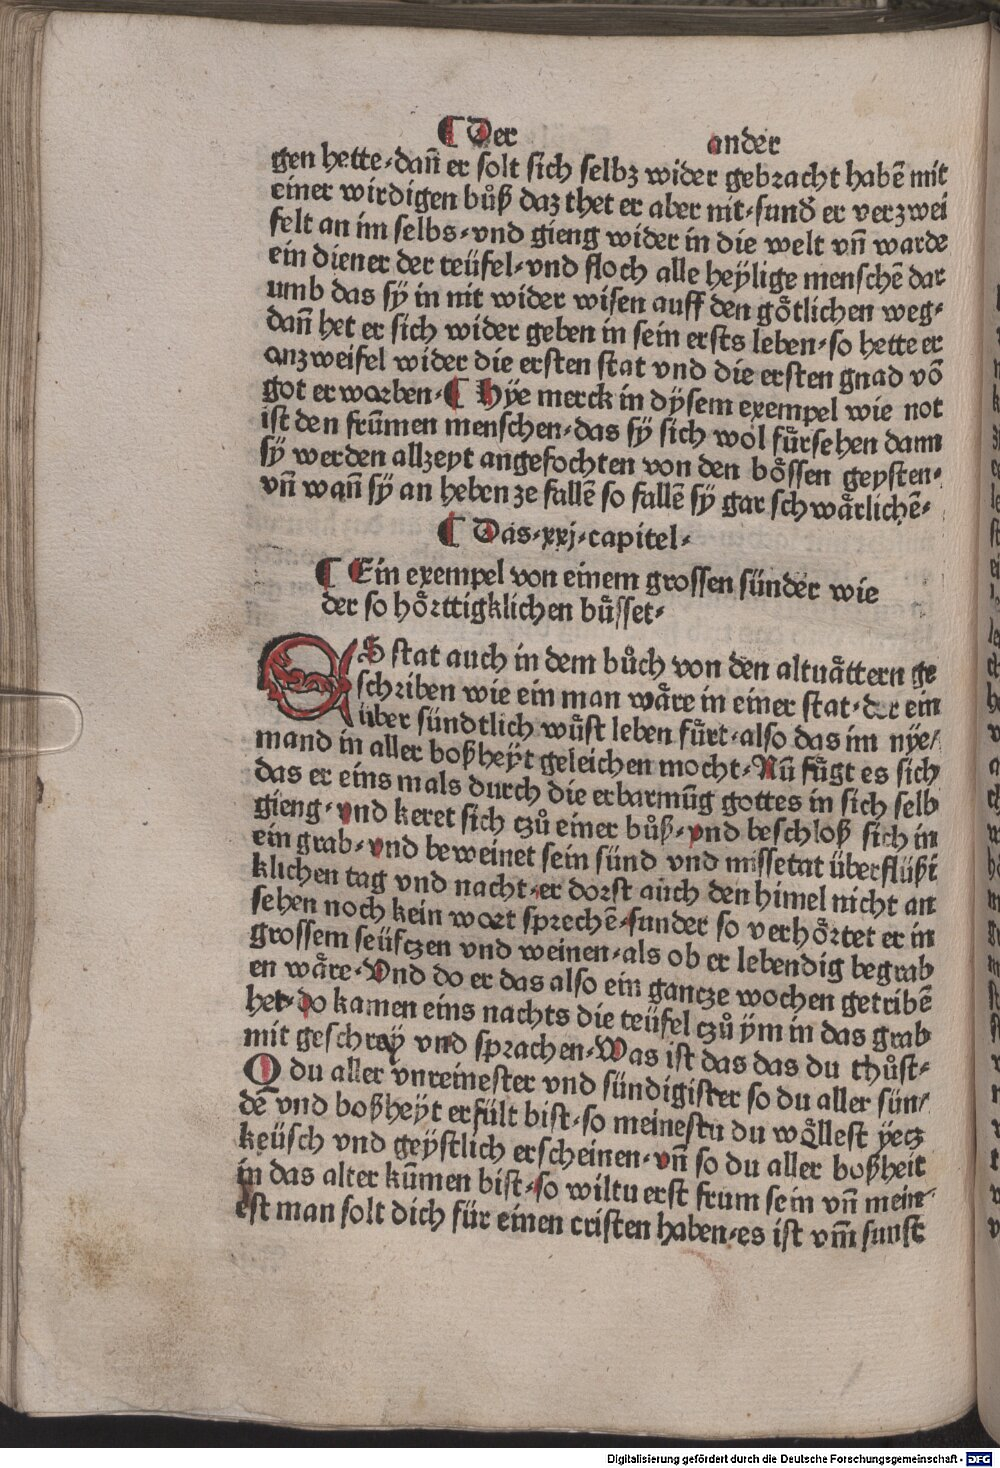 ¶ Der ander
gen hette·dañ er solt sich selbz wider gebracht habē mit
einer wirdigen bůß daz thet er aber nit·sund̄ er verzwei
felt an im selbs·vnd gieng wider in die welt vñ warde
ein diener der teüfel·vnd floch alle heÿlige menschē dar
umb das sÿ in nit wider wisen auff den goͤtlichen weg·
dañ het er sich wider geben in sein ersts leben·so hette er
anzweifel wider die ersten stat vnd die ersten gnad võ
got erworben·¶ Hÿe merck in dÿsem exempel wie not
ist den frūmen menschen·das sÿ sich wol fuͤrsehen dann
sÿ werden allzeyt angefochten von den boͤssen geysten·
vñ wañ sÿ an heben ze fallē so fallē sÿ gar schwaͤrlichē·
¶ Das·xxj·capitel·
¶ Ein exempel von einem grossen sünder wie
der so hoͤrttigklichen buͤsset·
ES stat auch in dem bůch von den altuaͤttern ge
schriben wie ein man waͤre in einer stat·der ein
über sündtlich wuͤst leben fuͤrt·also das im nÿe/
mand in aller boßheÿt geleichen mocht·Nū fuͤgt es sich
das er eins mals durch die erbarmūg gottes in sich selb
gieng·vnd keret sich czů einer bůß·vnd beschloß sich in
ein grab·vnd beweinet sein sünd vnd missetat überflüßi
klichen tag vnd nacht·er dorst auch den himel nicht an
sehen noch kein wort sprechē·sunder so verhoͤrtet er in
grossem seüfczen vnd weinen·als ob er lebendig begrab
en waͤre·Vnd do er das also ein gancze wochen getribē
het·do kamen eins nachts die teüfel czů ÿm in das grab
mit geschraÿ vnd sprachen·Was ist das das du thůst·
O du aller vnreinester vnd sündigister so du aller sün/
dē vnd boßheÿt erfült bist·so meinestu du woͤllest ÿecz
keüsch vnd geÿstlich erscheinen·vñ so du aller boßheit
in das alter kūmen bist·so wiltu erst frum sein vñ mein
est man solt dich für einen cristen haben·es ist vm̄ sunst
Digitalisierung gefördert durch die Deutsche Forschungsgemeinschaft - DFG